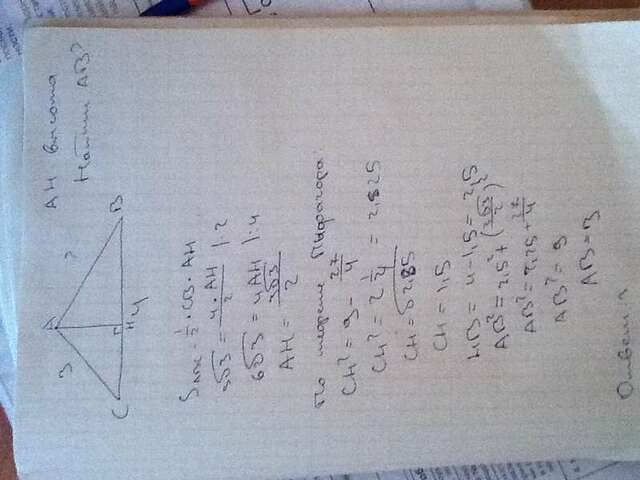 AH высота
Найти AB?
A
3
?
C
H
B
4
S = 1/2 · CB · AH
3√3 = 4 · AH / 2 | · 2
6√3 = 4AH | : 4
AH = 3√3 / 2
По теореме Пифагора:
CH² = 9 - 27/4
CH² = 2 1/4 =
CH =
CH = 1,5
HB = 4 - 1,5 = 2,5
AB² = 2,5² + (3√3/2)²
+ 27/4
AB² = 9
AB =
Ответ: